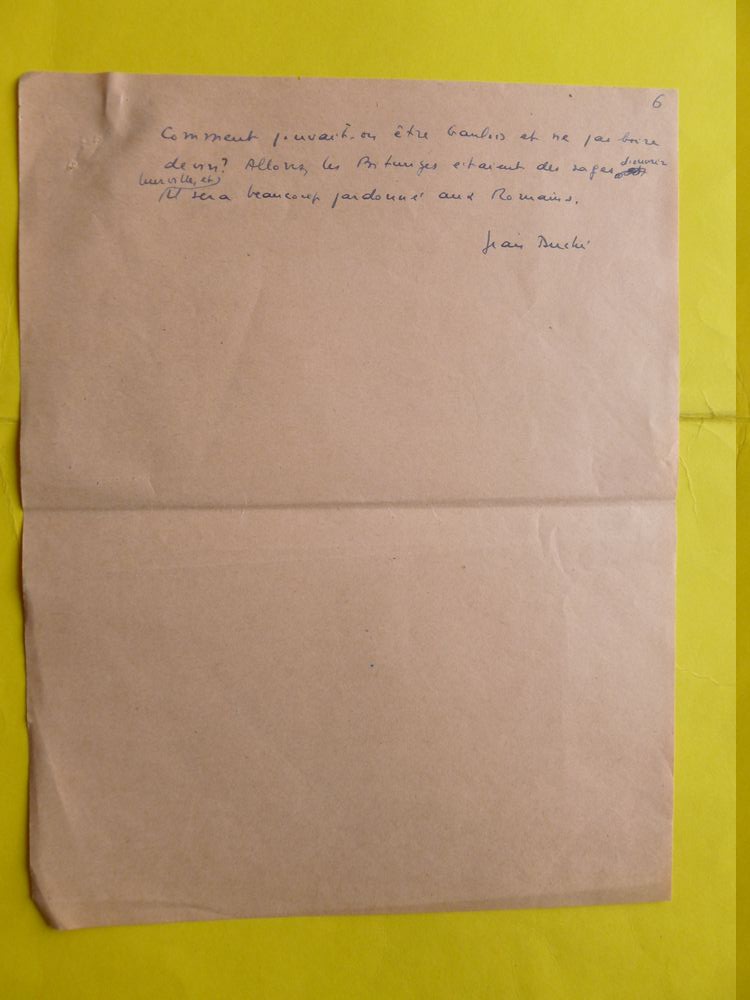 6
Comment pouvait-on être Gaulois et ne pas boire
de vin? Allons, les Bituriges étaient des sages d'ouvrir
leur ville, et
il sera beaucoup pardonné aux Romains.
Jean Duché